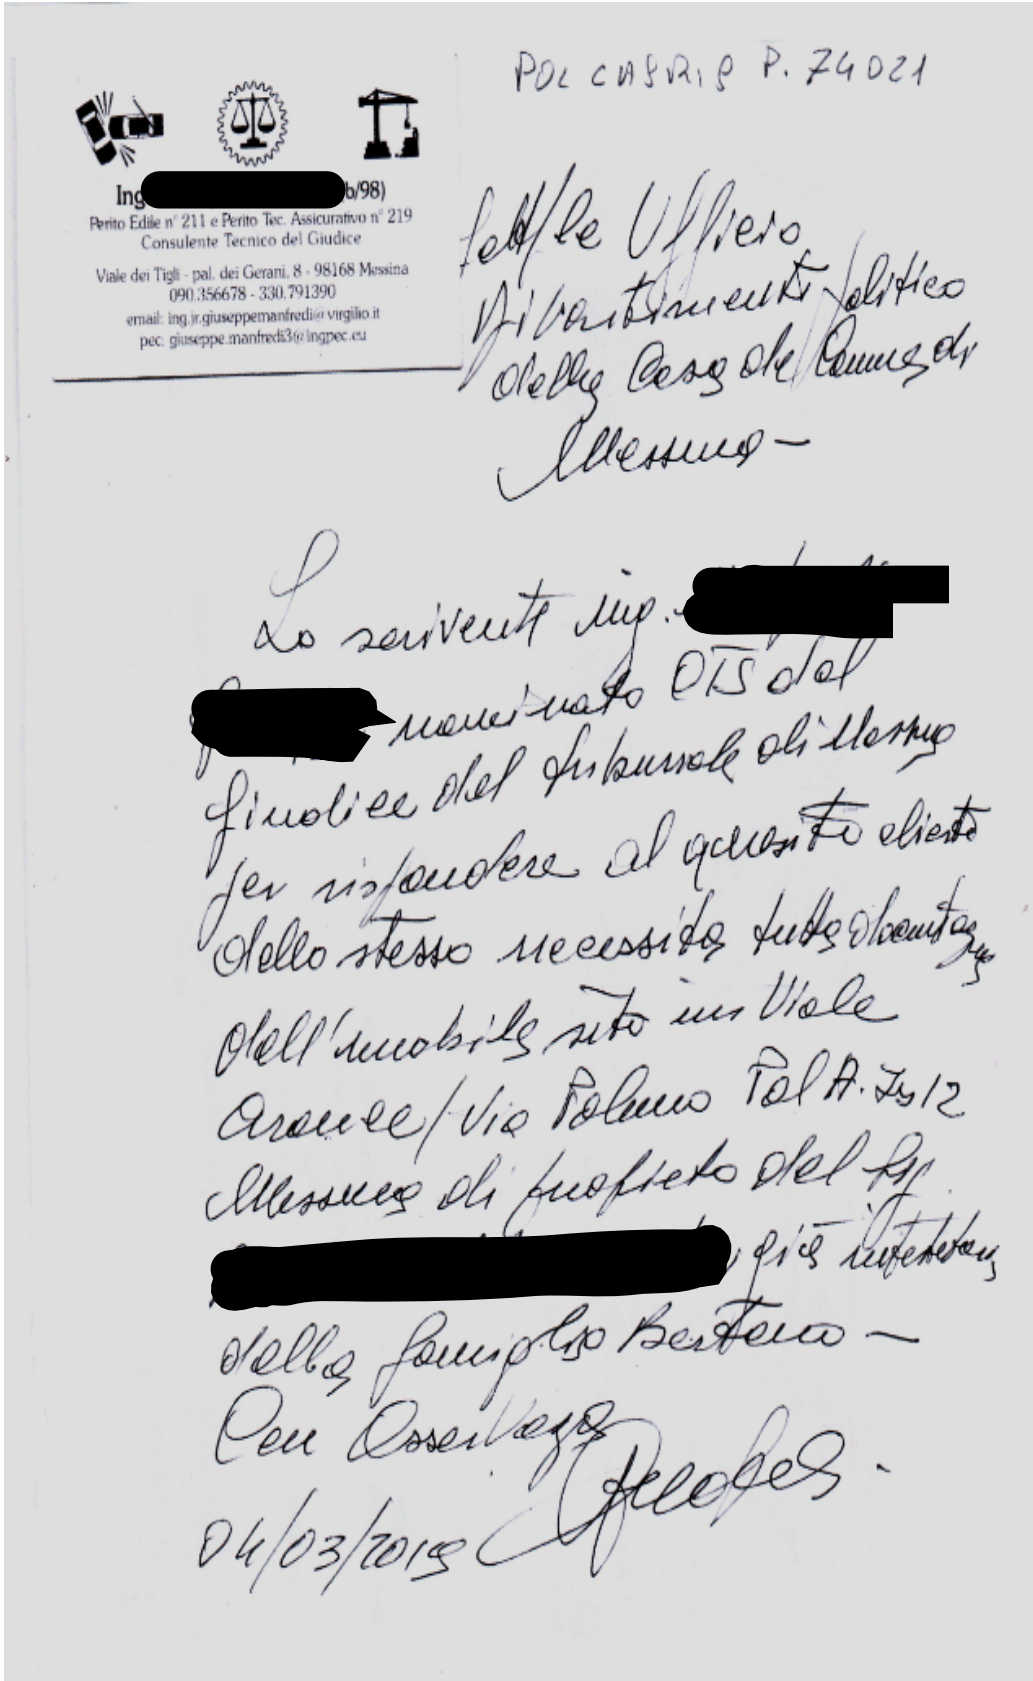 P. 74021
Ing b/98)
Perito Edile n° 211 e Perito Tec. Assicurativo n° 219
Consulente Tecnico del Giudice
Viale dei Tigli - pal. dei Gerani, 8 - 98168 Messina
090.356678 - 330.791390
email: ing.jr.giuseppemanfredi@virgilio.it
pec: giuseppe.manfredi3@ingpec.eu
Spett/le Ufficio
Dipartimento politico
della Casa del Comune di
Messina -
Lo scrivente ing.
nominato CTU dal
Giudice del Tribunale di Messina
per rispondere al quesito chiesto
dallo stesso necessita tutta
dell'immobile sito in Viale
Via Palermo Pal A. Is 12
Messina di proprietà del Sig.
già
della famiglia -
Con Osservanza
04/03/2019